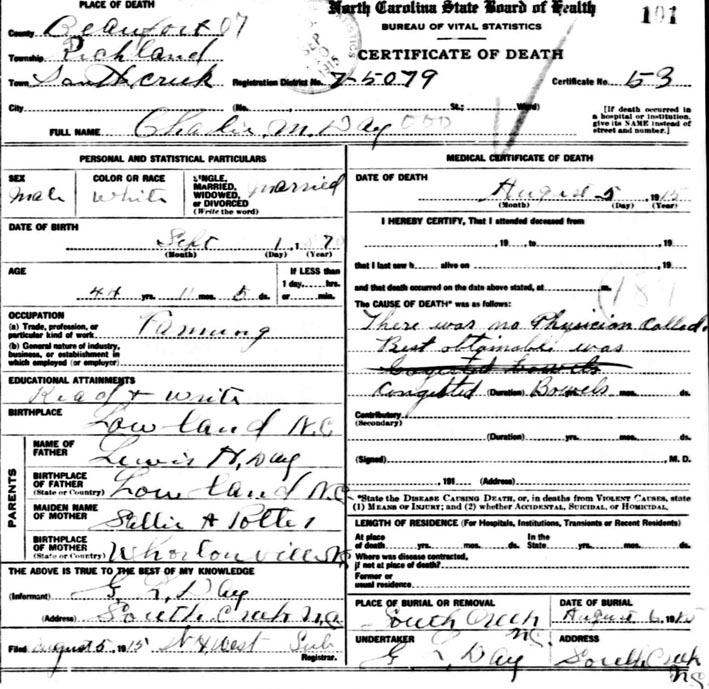 PLACE OF DEATH
County Beaufort 07
Township Richland
Town South Creek
City
FULL NAME Charlie M. Day 000
North Carolina State Board of Health
101
BUREAU OF VITAL STATISTICS
CERTIFICATE OF DEATH
Registration District No. 7-5079 Certificate No. 53
(No. St.; Ward)
[If death occurred in
a hospital or institution,
give its NAME instead of
street and number.]
PERSONAL AND STATISTICAL PARTICULARS
SEX
Male
COLOR OR RACE
White
SINGLE,
MARRIED,
WIDOWED,
or DIVORCED
(Write the word)
Married
DATE OF BIRTH
Sept 1, 1870
(Month) (Day) (Year)
AGE
44 yrs. 11 mos. 5 ds.
If LESS than
1 day, hrs.
or min.
OCCUPATION
(a) Trade, profession, or
particular kind of work
Farming
(b) General nature of industry,
business, or establishment in
which employed (or employer)
EDUCATIONAL ATTAINMENTS
Read & write
BIRTHPLACE
Lowland N.C
PARENTS
NAME OF
FATHER
Lewis H. Day
BIRTHPLACE
OF FATHER
(State or Country)
Lowland N.C
MAIDEN NAME
OF MOTHER
Sallie A Potter
BIRTHPLACE
OF MOTHER
(State or Country)
Whortonville N.C
THE ABOVE IS TRUE TO THE BEST OF MY KNOWLEDGE
(Informant) G. L. Day
(Address) South Creek N.C
Filed August 5, 1915 N H West Sub
Registrar.
MEDICAL CERTIFICATE OF DEATH
DATE OF DEATH
August 5, 1915
(Month) (Day) (Year)
I HEREBY CERTIFY, That I attended deceased from
, 19 , to , 19
that I last saw h alive on , 19
and that death occurred on the date above stated, at m.
189
The CAUSE OF DEATH* was as follows:
There was no Physician Called.
Best obtainable was
Congested Bowels
Congested (Duration) Bowels mos. ds.
Contributory
(Secondary)
(Duration) yrs. mos. ds.
(Signed) M. D.
, 191 (Address)
*State the DISEASE CAUSING DEATH, or, in deaths from VIOLENT CAUSES, state
(1) MEANS OF INJURY; and (2) whether ACCIDENTAL, SUICIDAL, OR HOMICIDAL.
LENGTH OF RESIDENCE (For Hospitals, Institutions, Transients or Recent Residents)
At place
of death yrs. mos. ds.
In the
State yrs. mos. ds.
Where was disease contracted,
if not at place of death?
Former or
usual residence
PLACE OF BURIAL OR REMOVAL
South Creek N.C.
DATE OF BURIAL
August 6, 1915
UNDERTAKER
G L Day
ADDRESS
South Creek N.C.